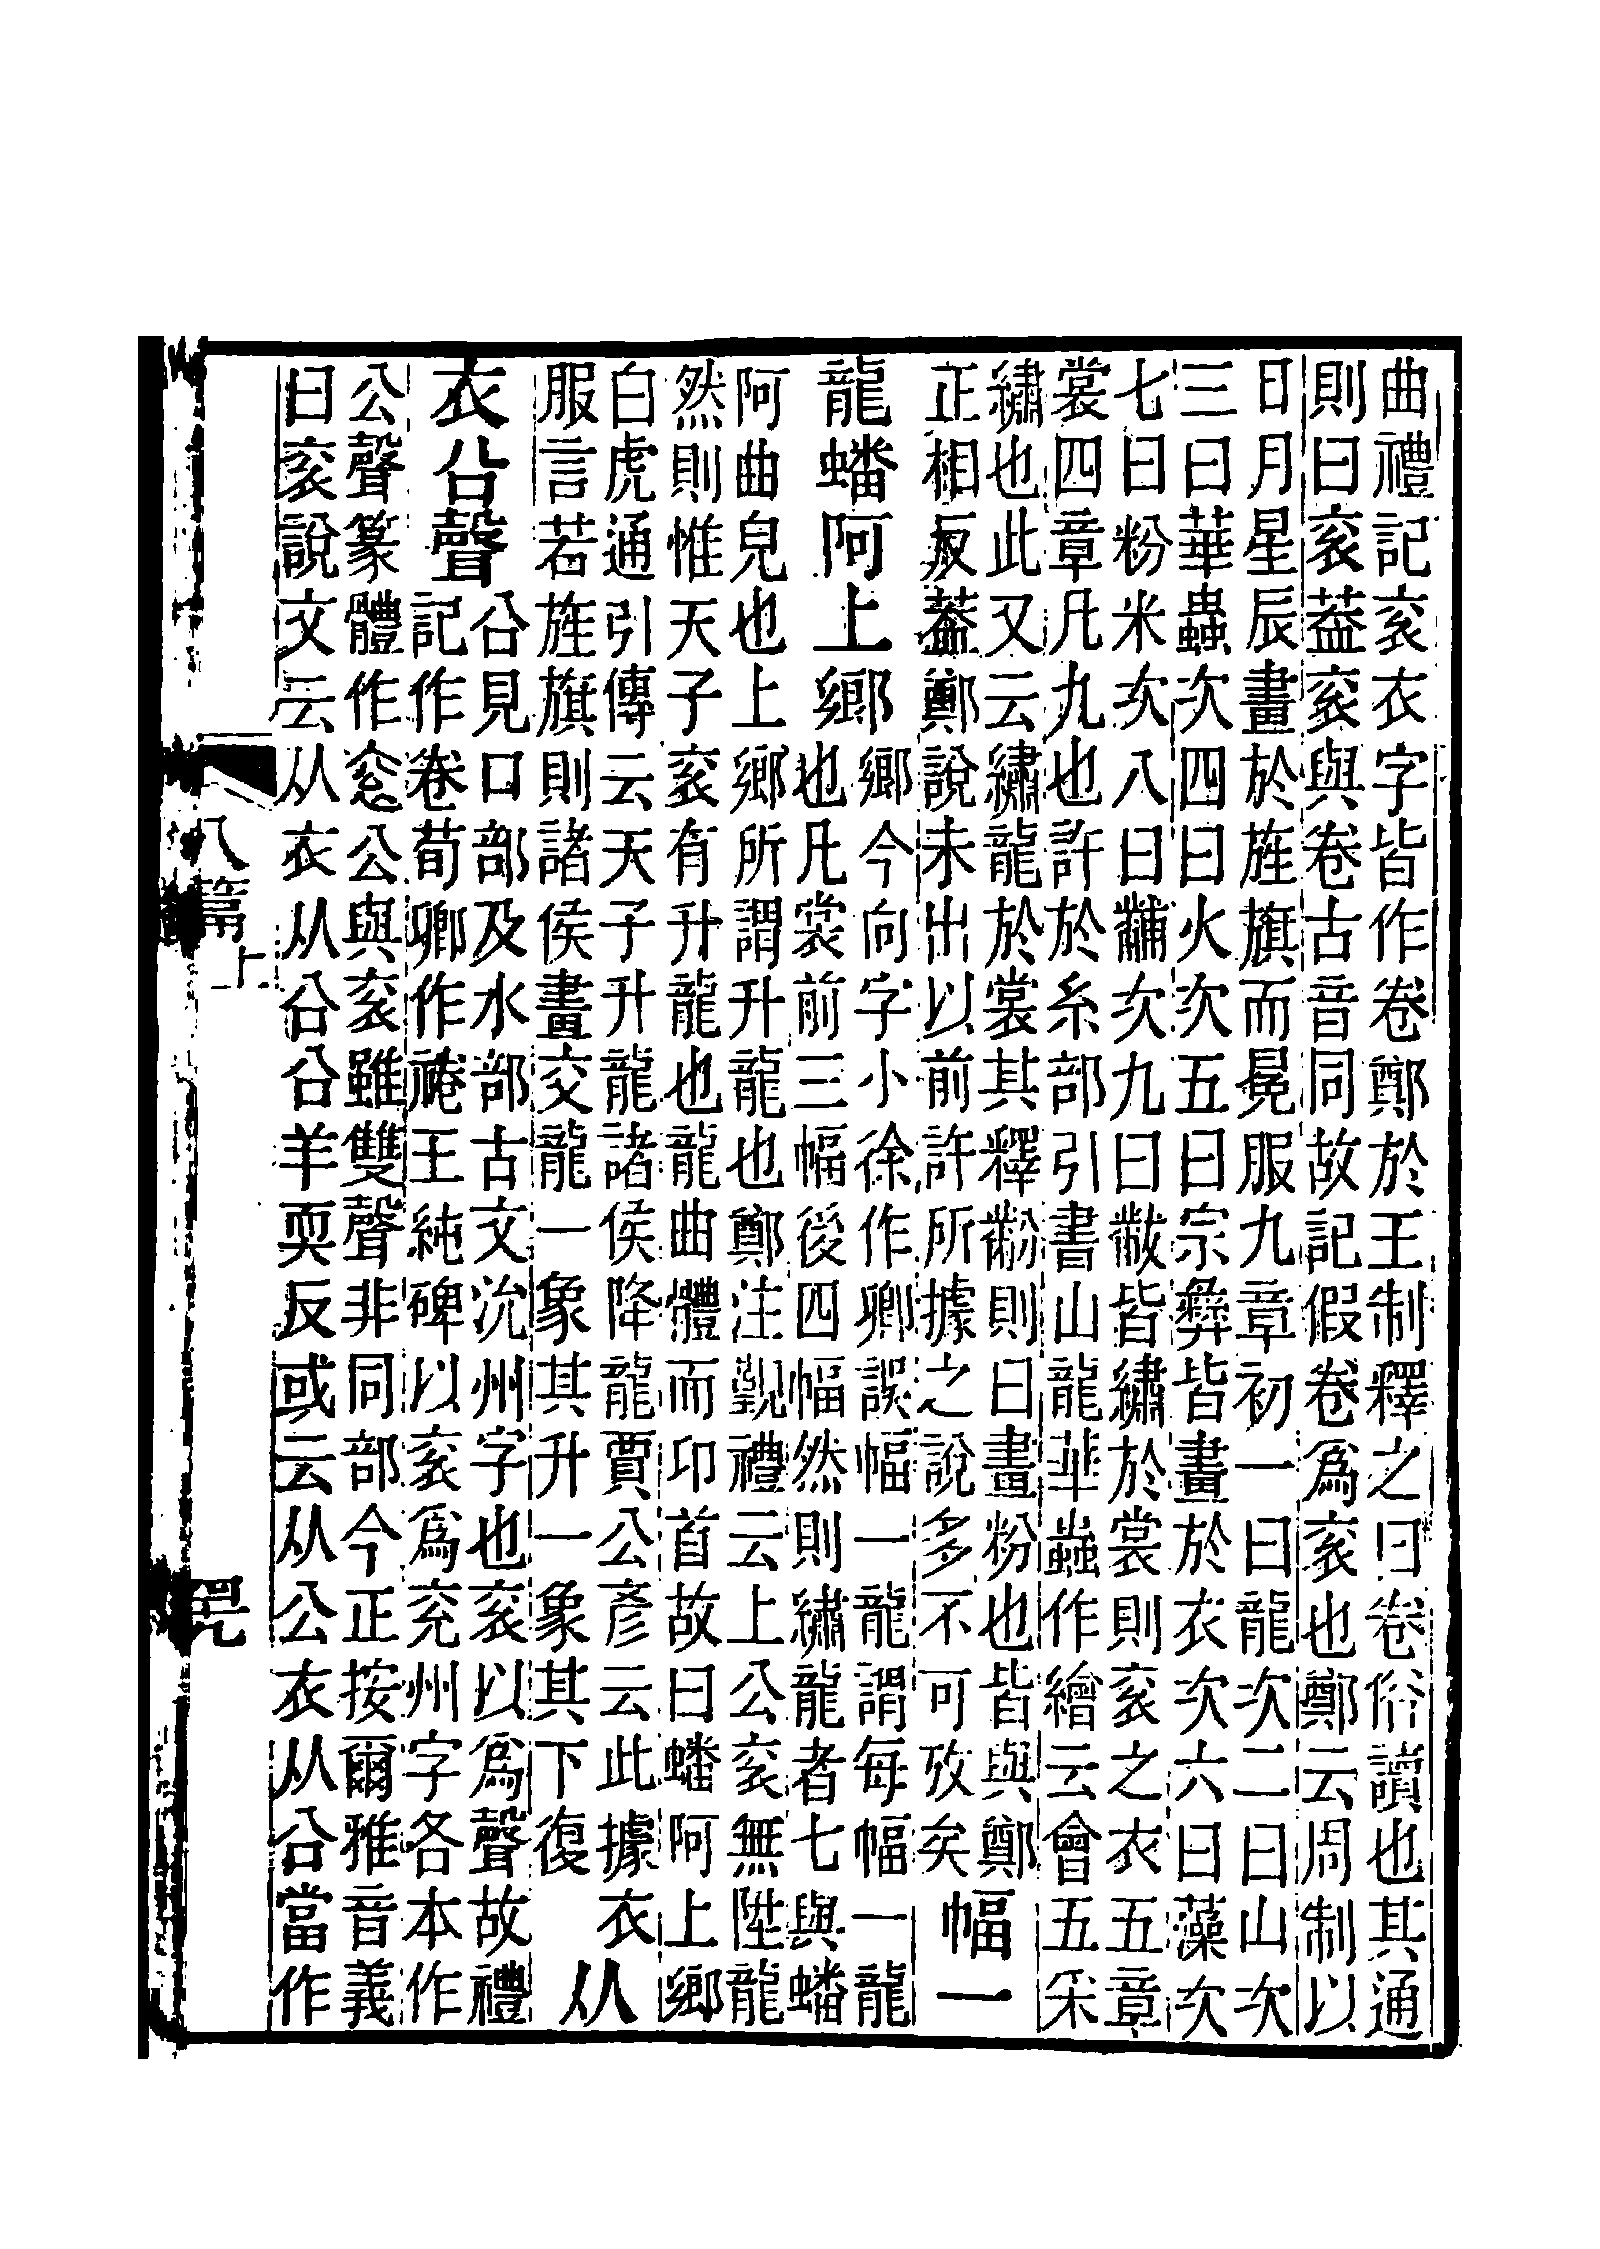 曲禮記衮衣字皆作卷鄭於王制釋之曰卷俗讀也其通
則曰衮葢衮與卷古音同故記假卷爲衮也鄭云周制以
日月星辰畫於旌旗而冕服九章初一曰龍次二曰山次
三曰華蟲次四曰火次五曰宗彝皆畫於衣次六曰藻次
七曰粉米次八曰黼次九曰黻皆繡於裳則衮之衣五章
裳四章凡九也許於糸部引書山龍華蟲作繪云會五采
繡也此又云繡龍於裳其釋黺則曰畫粉也皆與鄭
正相反葢鄭說未出以前許所據之說多不可攷矣
幅一
龍蟠阿上鄉
鄉今向字小徐作卿誤幅一龍謂每幅一龍
也凡裳前三幅後四幅然則繡龍者七與蟠
阿曲皃也上鄉所謂升龍也鄭注覲禮云上公衮無陞龍
然則惟天子衮有升龍也龍曲體而卬首故曰蟠阿上鄉
白虎通引傳云天子升龍諸侯降龍賈公彥云此據衣
服言若旌旗則諸侯畫交龍一象其升一象其下復
从
衣㕣聲
㕣見口部及水部古文沇州字也衮以爲聲故禮
記作卷荀卿作裷王純碑以衮爲兖州字各本作
公聲篆體作公與衮雖雙聲非同部今正按爾雅音義
曰衮說文云从衣从㕣㕣羊耎反或云从公衣从㕣當作
八篇上